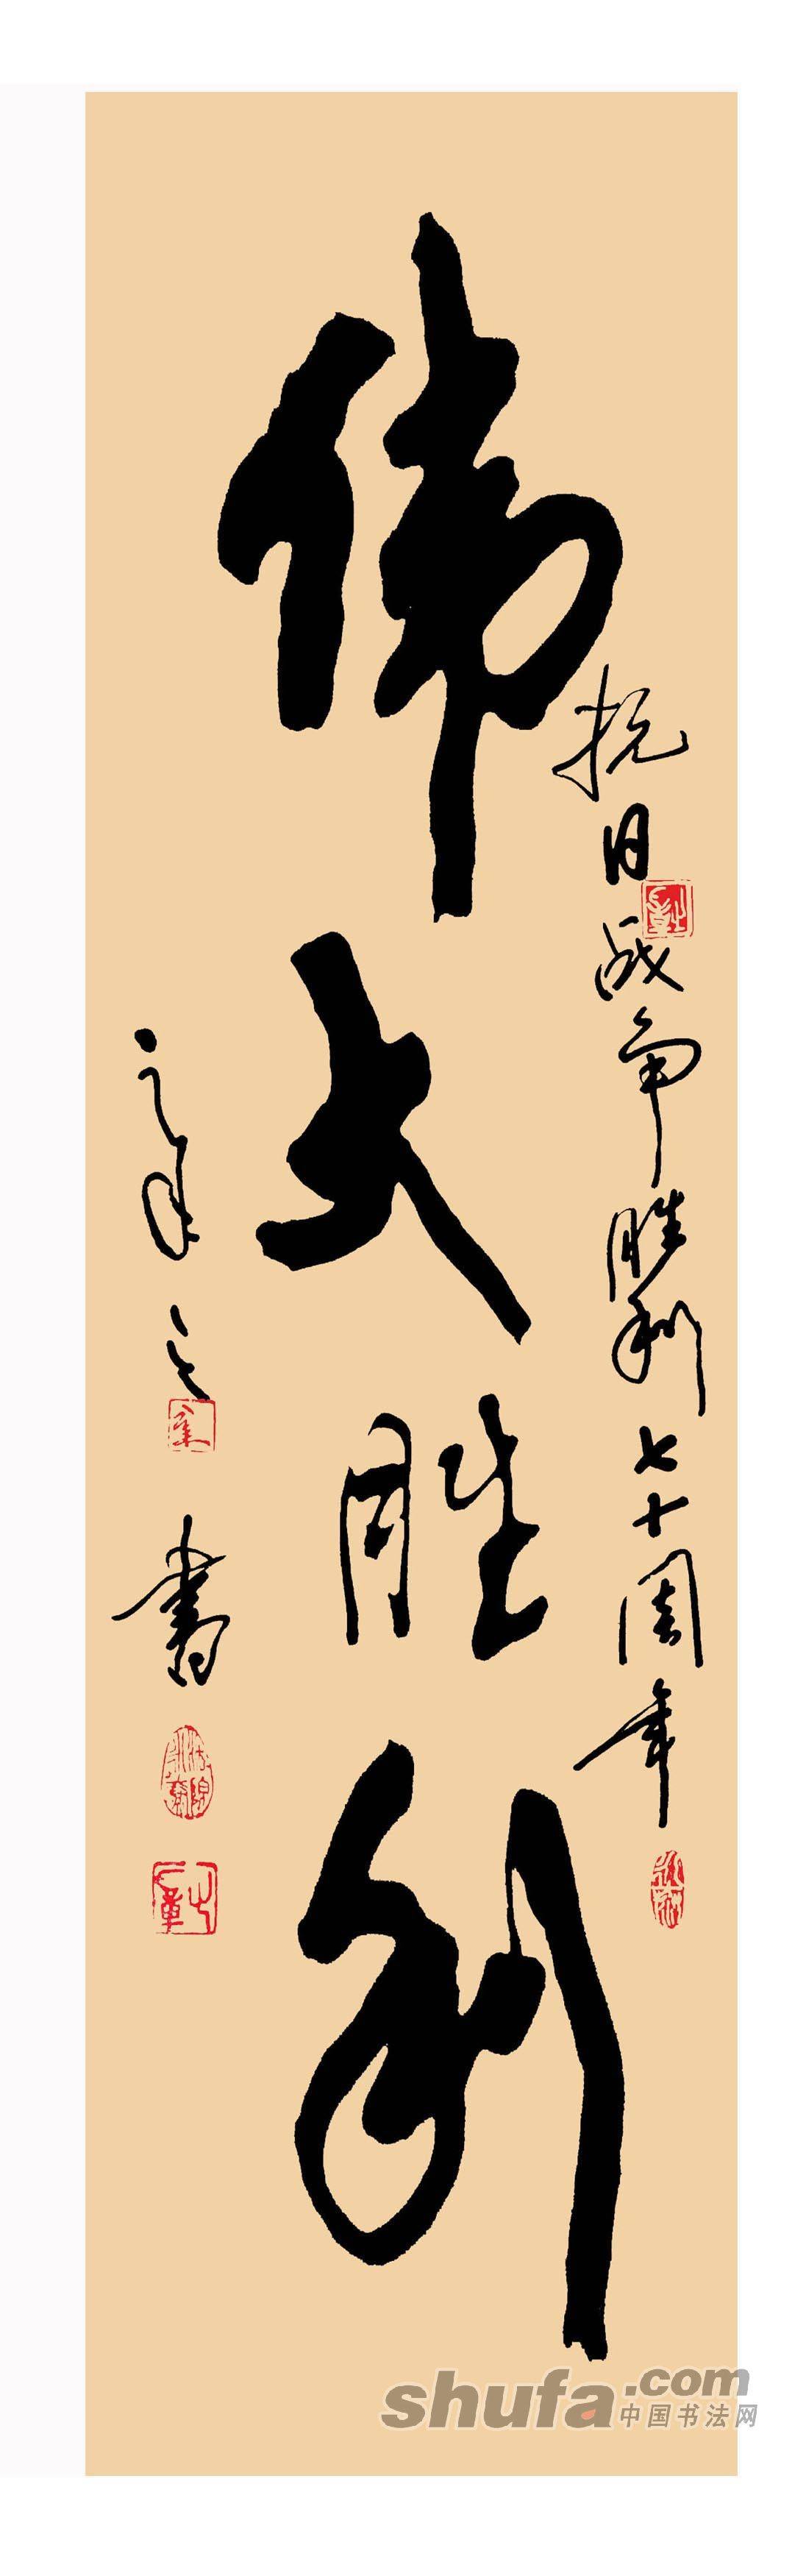 抗日战争胜利七十周年
伟大胜利
章之書
shufa.com
中国书法网